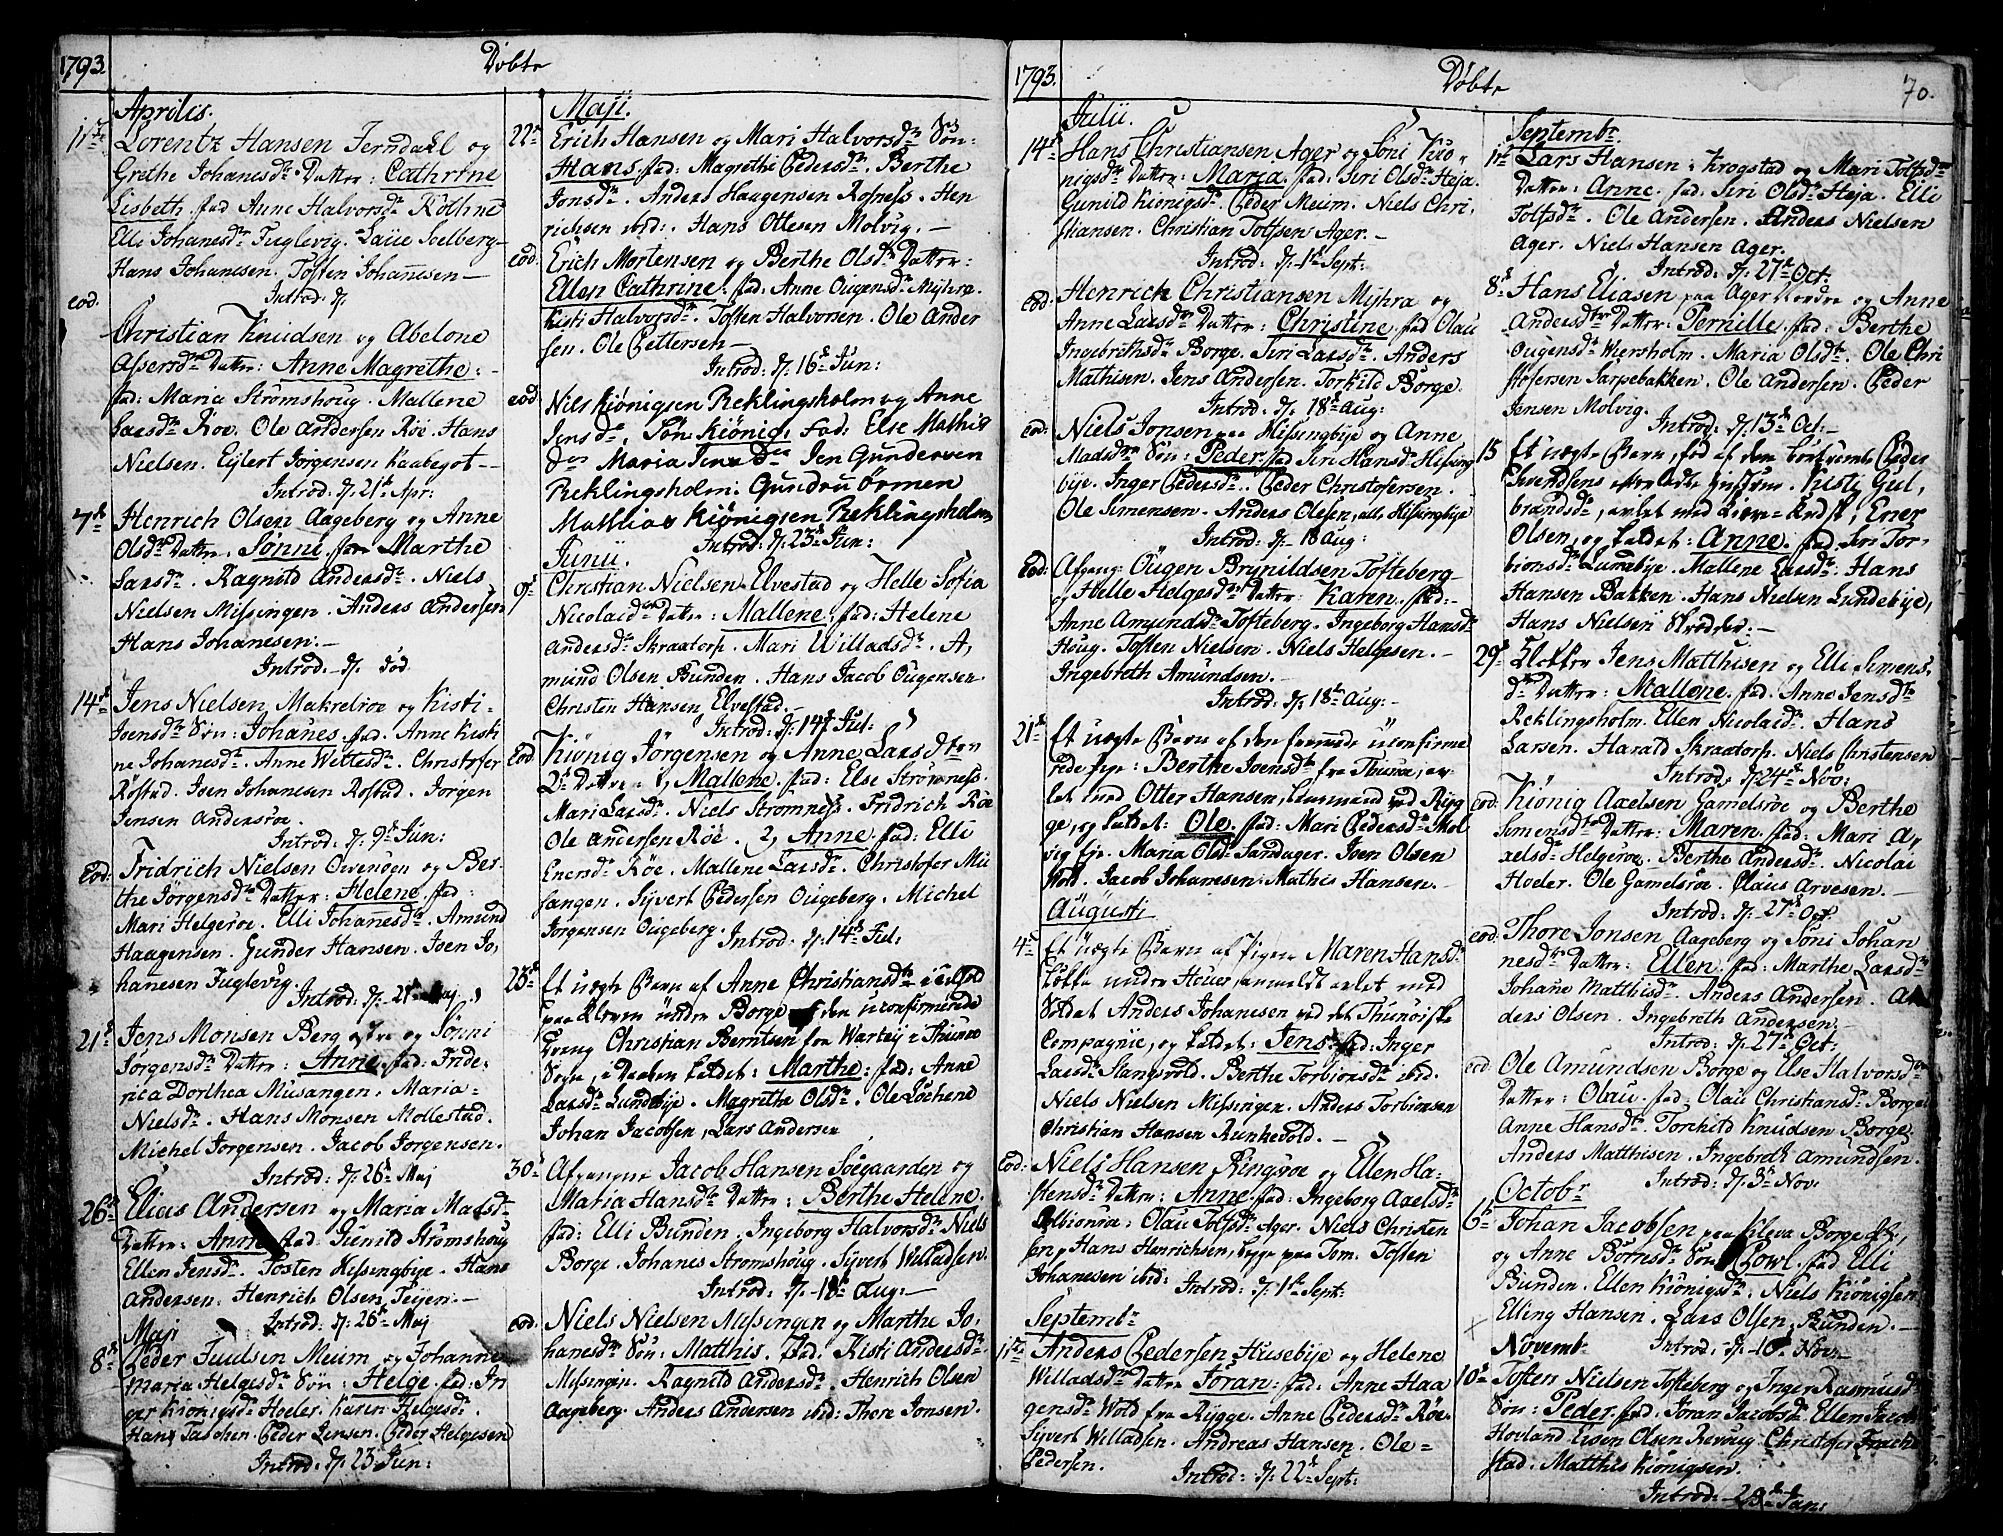 1793.
Døbte
Aprilis.
11te Lorentz Hansen Jerndahl og
Grethe Johanesdr Datter: Cathrine
Lisbeth. fad Anne Halvorsdr Kothne
Elli Johanesdr Fuglevig. Laue Soelberg
Hans Johanesen. Tosten Johanesen
Introd: d.
eod.
Christian Knudsen og Abelone
Assersdr Datter: Anne Magrethe:
fad: Maria Strømshoug. Mallene
Larsdr Røe. Ole Andersen Røe. Hans
Nielsen. Eylert Jørgensen Kaabegot
Introd: d. 21de Apr:
7de Henrich Olsen Aageberg og Anne
Olsdr Datter: Sønni. Marthe
Larsdr. Ragnild Andersdr. Niels
Nielsen Missingen. Anders Andersen
Hans Johanesen.
Introd. d. død
14de Jens Nielsen Makrelrøe og Kisti
Joensdr Søn: Johanes. fad: Anne Kisti
ne Johanesdr. Anne Wettesdr. Christofer
Røstad. Joen Johanesen Røstad. Jørgen
Jensen Andersrøe.
Introd: d. 9de Jun:
Eod: Fridrich Nielsen Owenden og Ber
the Jørgensdr Datter: Helene. fad:
Mari Helgerøe. Elli Johanesdr. Amund
Haagensen. Gunder Hansen. Joen Jo,
hanesen Fuglevig.
Introd: d. 21de Maj
21de Jens Monsen Berg østre og Sønni
Jørgensdr Datter: Anne. fad: Fride,
rica Dorthea Musangen. Maria
Nielsdr. Hans Monsen Mollestad.
Michel Jørgensen. Jacob Jørgensen.
Introd: d. 26de Maj
26de Elias Andersen og Maria Madsdr
Datter: Anne. fad: Gunild Strømshoug
Ellen Jensdr. Tosten Hissingbye. Hans
Andersen. Henrich Olsen Teijen.
Introd: d. 26de Maj
Maji
8de Peder Juulsen Meum og Johanne
Maria Helgesdr Søn: Helge. fad: In
ger Kiønigsdr Hoeler. Karen Helgesdr.
Hans Paschen. Peder Jensen. Peder Helgesen
Introd: d. 23 Jun:
Maji.
22de Erich Hansen og Mari Halvorsdr Søn:
Hans. fad: Magrethe Pedersdr. Berthe
Jonsdr. Anders Haagensen Rofness. Hen
richsen ibid. Hans Ottesen Molvig.
eod. Erich Mortensen og Berthe Olsdr Datter:
Ellen Cathrine. fad: Anne Ougensdr Myhra.
Kisti Halvorsdr. Tosten Halvorsen. Ole Ander
sen. Ole Pettersen
Introd: d. 16de Jun:
eod. Nils Kiönigsen Reklingsholm og Anne
Jensdr. Søn Kiönig: fad: Else Mathis
dr Maria Jensdr Jen Gundersen
Reklingsholm: Gundru Örmen
Mathias Kiönigsen Reklingsholm
Introd: d. 23de Jun:
Junii.
9de Christian Nielsen Elvestad og Helle Sofia
Nicolaidr Datter: Mallene. fad: Helene
Andersdr Skraatorp. Mari Willadsdr. A,
mund Olsen Bunden. Hans Jacob Ougensen
Christen Hansen Elvestad.
Introd: d. 14de Jul:
Eod: Kiönig Jørgensen og Anne Larsdtr
2de Døttre: 1, Mallene, fad: Else Strömness.
Mari Larsdr. Niels Stromness. Fridrich Röe
Ole Andersen Röe. 2, Anne. fad: Elli
Enersdr Röe. Mallene Larsdr. Christofer Mu
sangen. Syvert Pedersen Ougeberg. Michel
Jørgensen Ougeberg. Introd: d. 14de Jul:
23de Et uægte Barn af Anne Christiansdr
paa Kleven under Borge den uconfirmerede
Dreng Christian Berntsen fra Wartey i Thunøe
Sogn, i Daaben kaldet: Marthe: fad: Anne
Larsdr Lundebye. Magrethe Olsdr. Ole Løchene
Johan Jacobsen, Lars Andersen
30de Afgangne Jacob Hansen Søegaarden og
Maria Hansdr Datter: Berthe Helene.
fad: Elli Bunden. Ingeborg Halvorsdr Niels
Borge. Johanis Stromshoug. Syvert Willadsen.
Introd: d. 18de Aug:
eod. Niels Nielsen Missingen og Marthe Jo,
hanesdr Søn: Matthis. fad: Kisti Andersdr
Missingen. Ragnild Andersdr. Henrich Olsen
Aageberg. Anders Andersen ibid: Thore Jonsen.
1793.
Døbte
70.
Julii.
14de Hans Christiansen Ager og Soni Kiö,
nigsdr Datter: Maria. fad: Siri Olsdr Heja.
Gunild Kiönigsdr. Peder Meum. Niels Chri,
stiansen. Christian Tolfsen Ager.
Introd: d. 1de Sept:
eod: Henrich Christiansen Myhra og
Anne Larsdr Datter: Christine. fad Olau
Ingebrethsdr Borge. Siri Larsdr. Anders
Mathisen. Jens Andersen. Torkild Borge
Introd: d. 18de Aug:
eod: Niels Jonsen paa Hissingbye og Anne
Madsdr Søn: Peder. fad Siri Hansdr Hissing
bye. Inger Pedersdr. Peder Christofersen.
Ole Simensen. Anders Olesen, alle Hissingbye
Introd: d. 18 Aug:
Eod: Afgang: Ougen Brynildsen Tofteberg
og Helle Helgesdr Datter: Karen. fad:
Anne Amundsdr Tofteberg. Ingeborg Hansdr
Houg. Tosten Nielsen. Niels Helgesen.
Ingebreth Amundsen.
Introd: d. 18de Aug:
21de Et uægte Barn af den fremmede uconfirme
rede pige: Berthe Joensdr fra Thunøe, av
let med Otter Hansen, Lensmand ved Ryg
ge, og kaldet: Ole. fad: Mari Pedersdr Mol
vig. Maria Olsdr Sandager. Joen Olsen
Wold. Jacob Johanesen. Mathis Hansen.
Augusti
4de Et uægte Barn af Pigen Maren Hansdr
Løkke under Hauer, anmeldt avlet med
Soldat Anders Johanesen ved det Thunøiske
Compagnie, og kaldet: Jens. fad: Inger
Larsdr Slangsvold. Berthe Torbionsdr ibid.
Niels Nielsen Missingen. Anders Torbionsen
Christian Hansen Runkevold.
Eod: Niels Hansen Ringsrøe og Ellen Ha,
stensdr Datter: Anne. fad: Ingeborg Axelsdr
Albionrøe. Olau Tolfsdr Ager. Niels Christen
sen, Hans Henrichsen, begge paa Tom. Tosten
Johanesen ibid: Introd: d. 1de Sept:
Septembr
11te Anders Pedersen Husebye og Helene
Willadsdr Datter Joran. fad: Anne Haa
gensdr Wold fra Rygge. Anne Pedersdr Röe.
Syvert Willadsen. Andreas Hansen. Ole
Pedersen.
Introd: d. 22de Sept:
Septembr.
1te Lars Hansen Krogstad og Mari Tolfsdr
Datter: Anne. fad: Siri Olsdr Heja. Elli
Tolfsdr. Ole Andersen. Anders Nielsen
Ager. Niels Hansen Ager.
Introd: d. 27de Oct.
8de Hans Eliasen paa Ager Nordre og Anne
Andersdr Datter: Pernille. fad: Berthe
Ougensdr Wiersholm. Maria Olsdr. Ole Chri
stofersen Sarpebakken. Ole Andersen. Peder
Jensen Molvig.
Introd: d. 13de Oct:
15 Et uægte Barn, fød af den bortrømte Peder
Svendsens efterladte hustru Kisti Gul,
brandsdr, avlet med, Ener
Olsen, og kaldet: Anne. fad. Siri Tor,
bionsdr Lundebye. Mallene Larsdr. Hans
Hansen Bakken. Hans Nielsen Lundebye,
Hans Nielsen Skredder.
29de Klokker Jens Matthisen og Elli Simens
dr Datter: Mallene. fad: Anne Jensdr
Reklingsholm. Ellen Nicolaidr. Hans
Larsen. Harald Skraatorp. Niels Christensen
Introd: d. 24de Nov:
eod: Kiönig Axelsen Gamelsrøe og Berthe
Simensdr Datter: Maren. fad: Mari A,
xelsdr Helgerøe. Berthe Andersdr. Nicolai
Hoeler. Ole Gamelsrøe. Claus Arvesen.
Introd: d. 27de Oct.
eod: Thore Jonsen Aageberg og Soni Johan
nesdr Datter: Ellen. fad: Marthe Larsdr
Johane Matthisdr. Anders Andersen. An
ders Olsen. Ingebreth Andersen.
Introd: d. 27de Oct:
eod Ole Amundsen Borge og Else Halvorsdr
Datter: Olau. fad: Olau Christiansdr Borge
Anne Hansdr. Torchild Knudsen Borge
Anders Matthisen. Ingebreth Amundsen.
Introd: d. 3de Nov:
Octobr
6te Johan Jacobsen paa Kleva Borge,
og Anne Børnsdr Søn Powl. fad Elli
Bunden. Ellen Kiönigsdr. Niels Kiönigsen
Elling Hansen. Lars Olsen Bunden.
Novembr Introd: d. 10de Nov:
10de Tosten Nielsen Tofteberg og Inger Rasmusdr
Søn: Peder. fad: Joran Jacobsdr. Ellen
Hovland. Even Olsen. Christofer
stad. Matthis Kiönigsen.
Introd: 28de Jan: